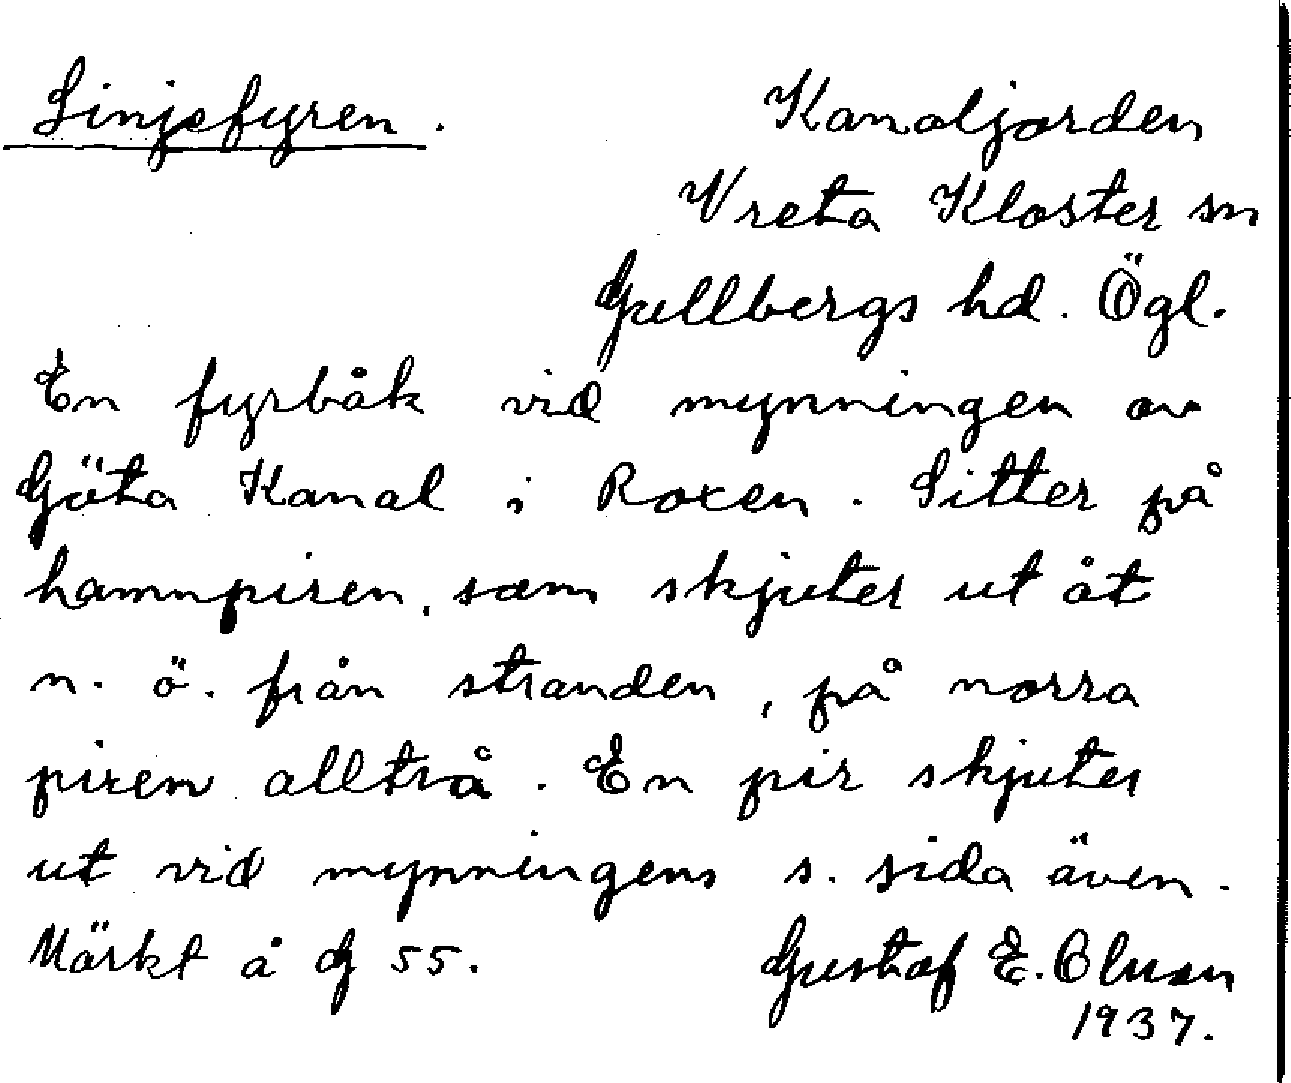 Linjefyren.
Kanaljorden
Vreta Kloster sn
Gullbergs hd. Ögl.
En fyrbåk vid mynningen av
Göta Kanal i Roxen. Sitter på
hamnpiren, som skjuter ut åt
n. ö. från stranden, på norra
piren alltså. En pir skjuter
ut vid mynningens s. sida även.
Märkt å G 55.
Gustaf E.
1937.